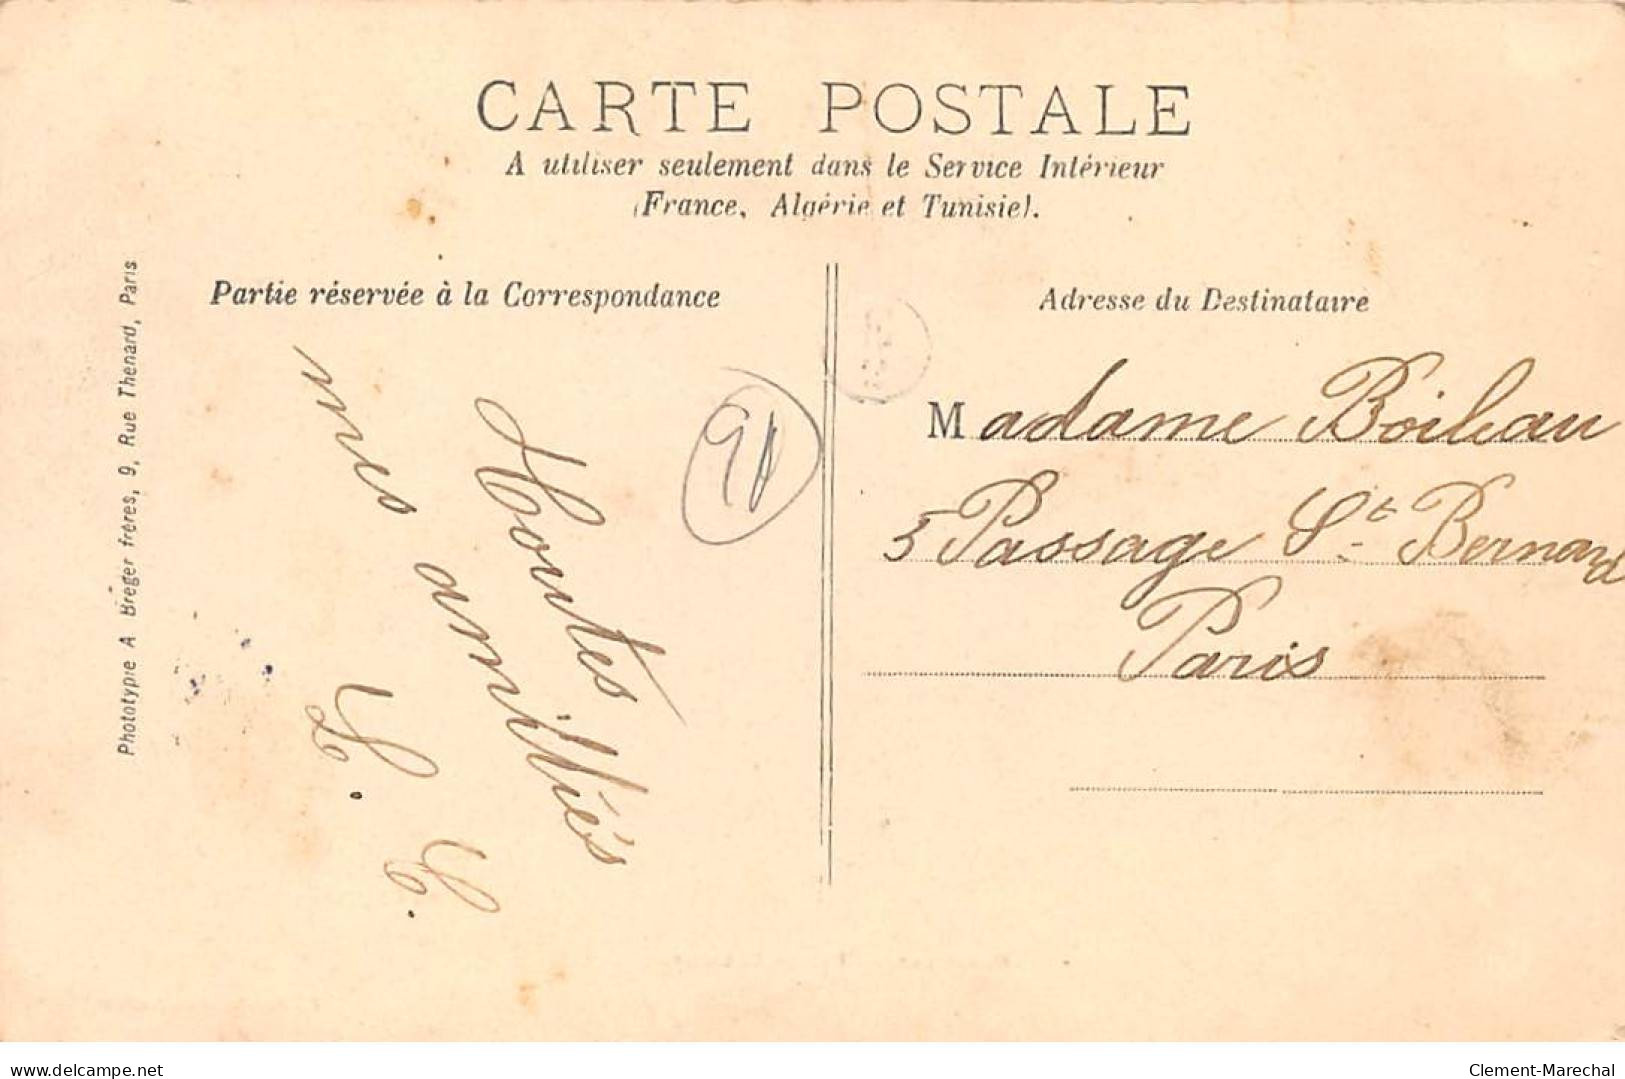 CARTE POSTALE
A utiliser seulement dans le Service Intérieur
(France, Algérie et Tunisie).
Partie réservée à la Correspondance
Adresse du Destinataire
Phototypie A Breger frères, 9, Rue Thenard, Paris
Toutes
mes amitiés
L. C.
Madame Boileau
5 Passage St Bernard
Paris
www.delcampe.net
Clement-Marechal